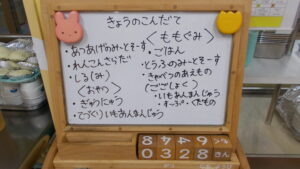 きょうのこんだて
・あつあげのみーとそーす
・れんこんさらだ
・しる(み)
〈おやつ〉
・ぎゅうにゅう
・てづくりいもあんまんじゅう
〈ももぐみ〉
・ごはん
・とうふのみーとそーす
・きゃべつのあえもの
〈ごごしょく〉
・いもあんまんじゅう
・すーぷ・くだもの
8 6 4 4 9
0 3 2 8 きん